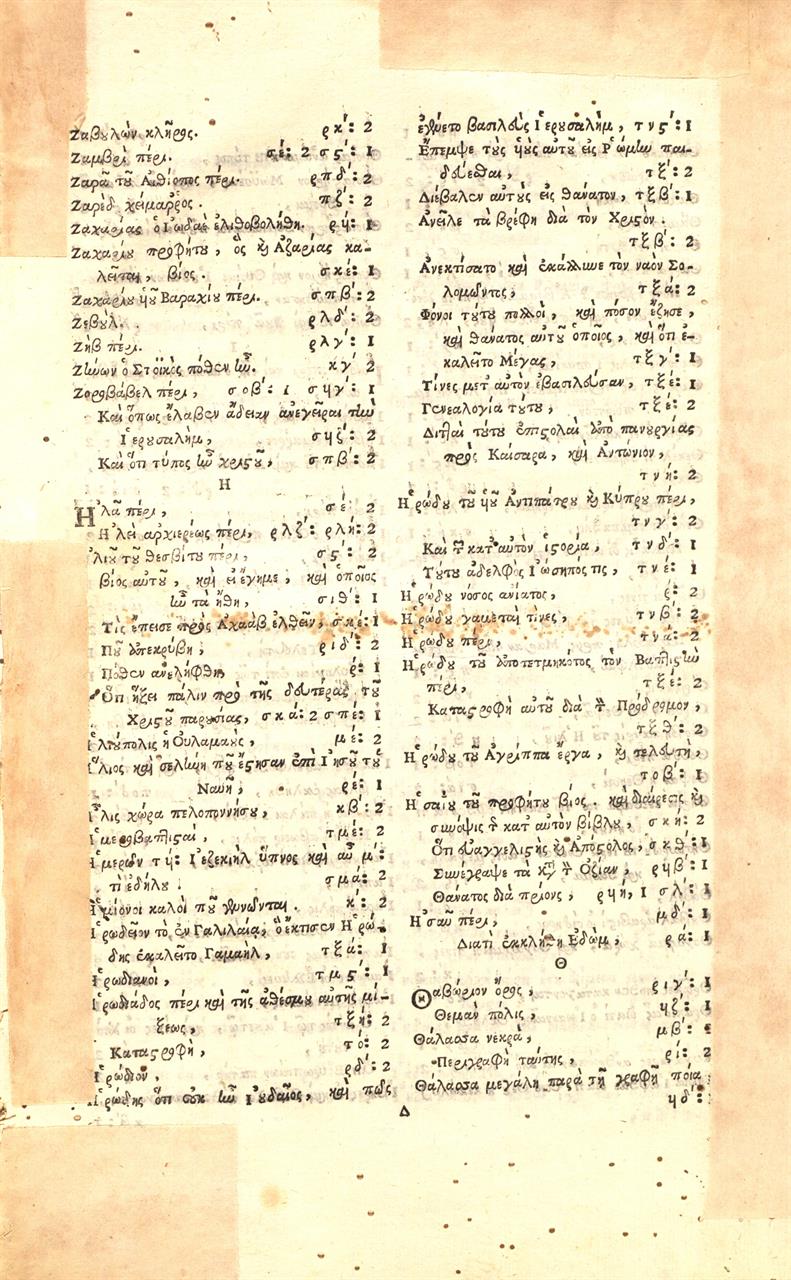 Ζαβυλὼν κλῆρος. ρκ΄: 2
Ζαμβρὶ πέρι. σέ: 2 σϛ΄: 1
Ζαρᾶ τοῦ Αἰθίοπος πέρι. ρπδ΄: 2
Ζαρὲδ χείμαρρος. πζ΄: 2
Ζαχαρίας ὁ Ἰωδαὲ ἐλιθοβολήθη. ρϟή: 1
Ζαχαρίου προφήτου, ὃς καὶ Ἀζαρίας κα-
λεῖται, βίος. σκέ: 1
Ζαχαρίου υἱοῦ Βαραχίου πέρι. σπβ΄: 2
Ζεβούλ. ρλδ΄: 2
Ζὴβ πέρι. ρλγ΄: 1
Ζήνων ὁ Στοϊκὸς πόθεν ἦν. κγ΄ 2
Ζοροβάβελ πέρι, σοβ΄: 1 σϟγ΄: 1
Καὶ ὅπως ἔλαβεν ἄδειαν ἀνεγεῖραι τὴν
Ἱερουσαλήμ, σϟζ΄: 2
Καὶ ὅτι τύπος ἦν χριστοῦ, σπβ΄: 2
Η
Ἠλᾶ πέρι, σέ: 2
Ἠλεὶ ἀρχιερέως πέρι, ρλζ΄: ρλή: 2
λιοῦ τοῦ Θεσβίτου πέρι, σϛ΄: 2
βίος αὐτοῦ, καὶ εἰ ἔγημε, καὶ ὁποῖος
ἦν τὰ ἤθη, σιθ΄: 1
Τὶς ἔπεισε πρὸς Ἀχαὰβ ἐλθεῖν, σκέ: 1
Ποῦ ἀπεκρύβη, ριδ΄: 2
Πόθεν ἀνελήφθη, ρ: 1
Ὅτι ἥξει πάλιν πρὸ τῆς δευτέρας τοῦ
Χριστοῦ παρουσίας, σκά: 2 σπέ: 1
Ἡλιούπολις ἡ Οὐλαμαοὺς, μέ: 2
Ἥλιος καὶ σελήνη ποῦ ἔστησαν ἐπὶ Ἰησοῦ τοῦ
Ναυῆ, ρέ: 1
Ἦλις χώρα πελοποννήσου, κβ΄: 2
Ἡμεροβαπτισταὶ, τμέ: 2
Ἡμερῶν τϟ: Ἰεζεκιὴλ ὕπνος καὶ αὖ μ΄:
τὶ ἐδήλου. σμά: 2
Ἡμίονοι καλοὶ ποῦ γίνωνται. κ΄: 2
Ἡρωδεῖον τὸ ἐν Γαλιλαίᾳ, ὃ ἔκτισεν Ἡρώ-
δης ἐκαλεῖτο Γαμαὴλ, τξά: 1
Ἡρωδιανοὶ, τμϛ΄: 1
Ἡρωδιάδος πέρι καὶ τῆς ἀθέσμου αὐτῆς μί-
ξεως, τξή: 2
Καταστροφὴ, τό: 2
Ἡρώδιον, ρδ΄: 2
Ἡρώδης ὅτι οὐκ ἦν Ἰουδαῖος, καὶ πῶς
ἐγένετο βασιλεὺς Ἱερουσαλὴμ, τνϛ΄: 1
Ἔπεμψε τοὺς υἱοὺς αὐτοῦ εἰς Ῥώμην παι-
δεύεσθαι, τξ΄: 2
Διέβαλεν αὐτοὺς εἰς θάνατον, τξβ΄: 1
Ἀνεῖλε τὰ βρέφη διὰ τὸν Χριστόν.
τξβ΄: 2
Ἀνεκτίσατο καὶ ἐκάλλυνε τὸν ναὸν Σο-
λομῶντος, τξά: 2
Φόνοι τούτου πολλοὶ, καὶ πόσον ἔζησε,
καὶ θάνατος αὐτοῦ ὁποῖος, καὶ ὅτι ἐ-
καλεῖτο Μέγας, τξγ΄: 1
Τίνες μετ' αὐτὸν ἐβασίλευσαν, τξέ: 1
Γενεαλογία τούτου, τξέ: 2
Διτταὶ τούτου ἐπιστολαὶ ἀπὸ πανουργίας
πρὸς Καίσαρα, καὶ Ἀντώνιον,
τνή: 2
Ἡρώδου τοῦ υἱοῦ Ἀντιπάτρου καὶ Κύπρου πέρι,
τνγ΄: 2
Καὶ ἡ κατ' αὐτὸν ἱστορία, τνδ΄: 1
Τούτου ἀδελφὸς Ἰώσηπός τις, τνέ: 1
Ἡρώδου νόσος ἀνίατος, ρ: 2
Ἡρώδου γαμεταὶ τίνες, τνβ΄: 2
Ἡρώδου πέρι, τνά: 2
Ἡρώδου τοῦ ἀποτετμηκότος τὸν Βαπτιστὴν
πέρι, τξέ: 2
Καταστροφὴ αὐτοῦ διὰ τὸν Πρόδρομον,
τξθ΄: 2
Ἡρώδου τοῦ Ἀγρίππα ἔργα, καὶ τελευτὴ,
τοβ΄: 1
Ἡσαΐου τοῦ προφήτου βίος. καὶ διαίρεσις καὶ
σύνοψις τοῦ κατ' αὐτὸν βίβλου, σκή: 2
Ὅτι εὐαγγελιστὴς καὶ Ἀπόστολος, σκθ΄: 1
Συνέγραψε τὰ κατὰ τὸν Ὀζίαν, ρϟβ΄: 1
Θάνατος διὰ πρίονος, ρϟή, 1 σλ΄: 1
Ἡσαῦ πέρι, μδ΄: 1
Διατὶ ἐκκλήθη Ἐδὼμ, ρά: 1
Θ
Θαβώριον ὄρος, ριγ΄: 1
Θεμὰν πόλις, ϟζ΄: 1
Θάλασσα νεκρὰ, μβ΄:
Περιγραφὴ ταύτης, ρί: 2
Θάλασσα μεγάλη παρὰ τῇ γραφῇ ποία
ϟδ΄:
Δ